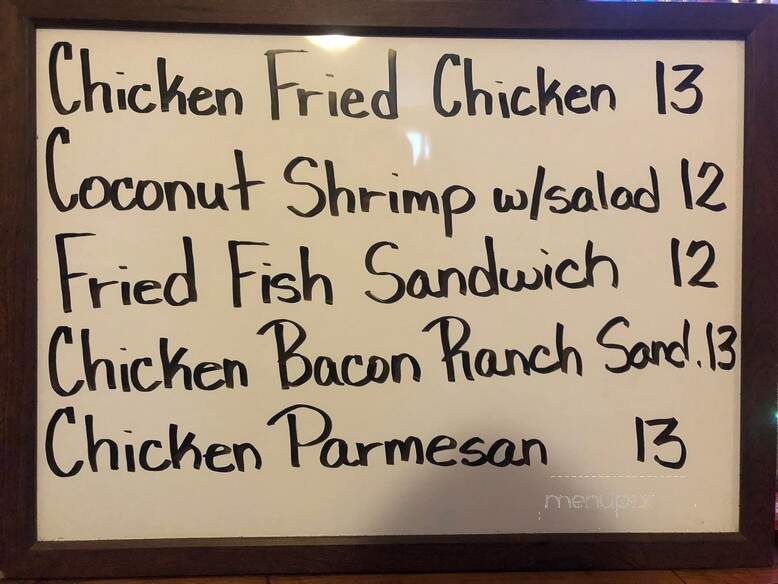 Chicken Fried Chicken 13
Coconut Shrimp w/salad 12
Fried Fish Sandwich 12
Chicken Bacon Ranch Sand. 13
Chicken Parmesan 13
menupix